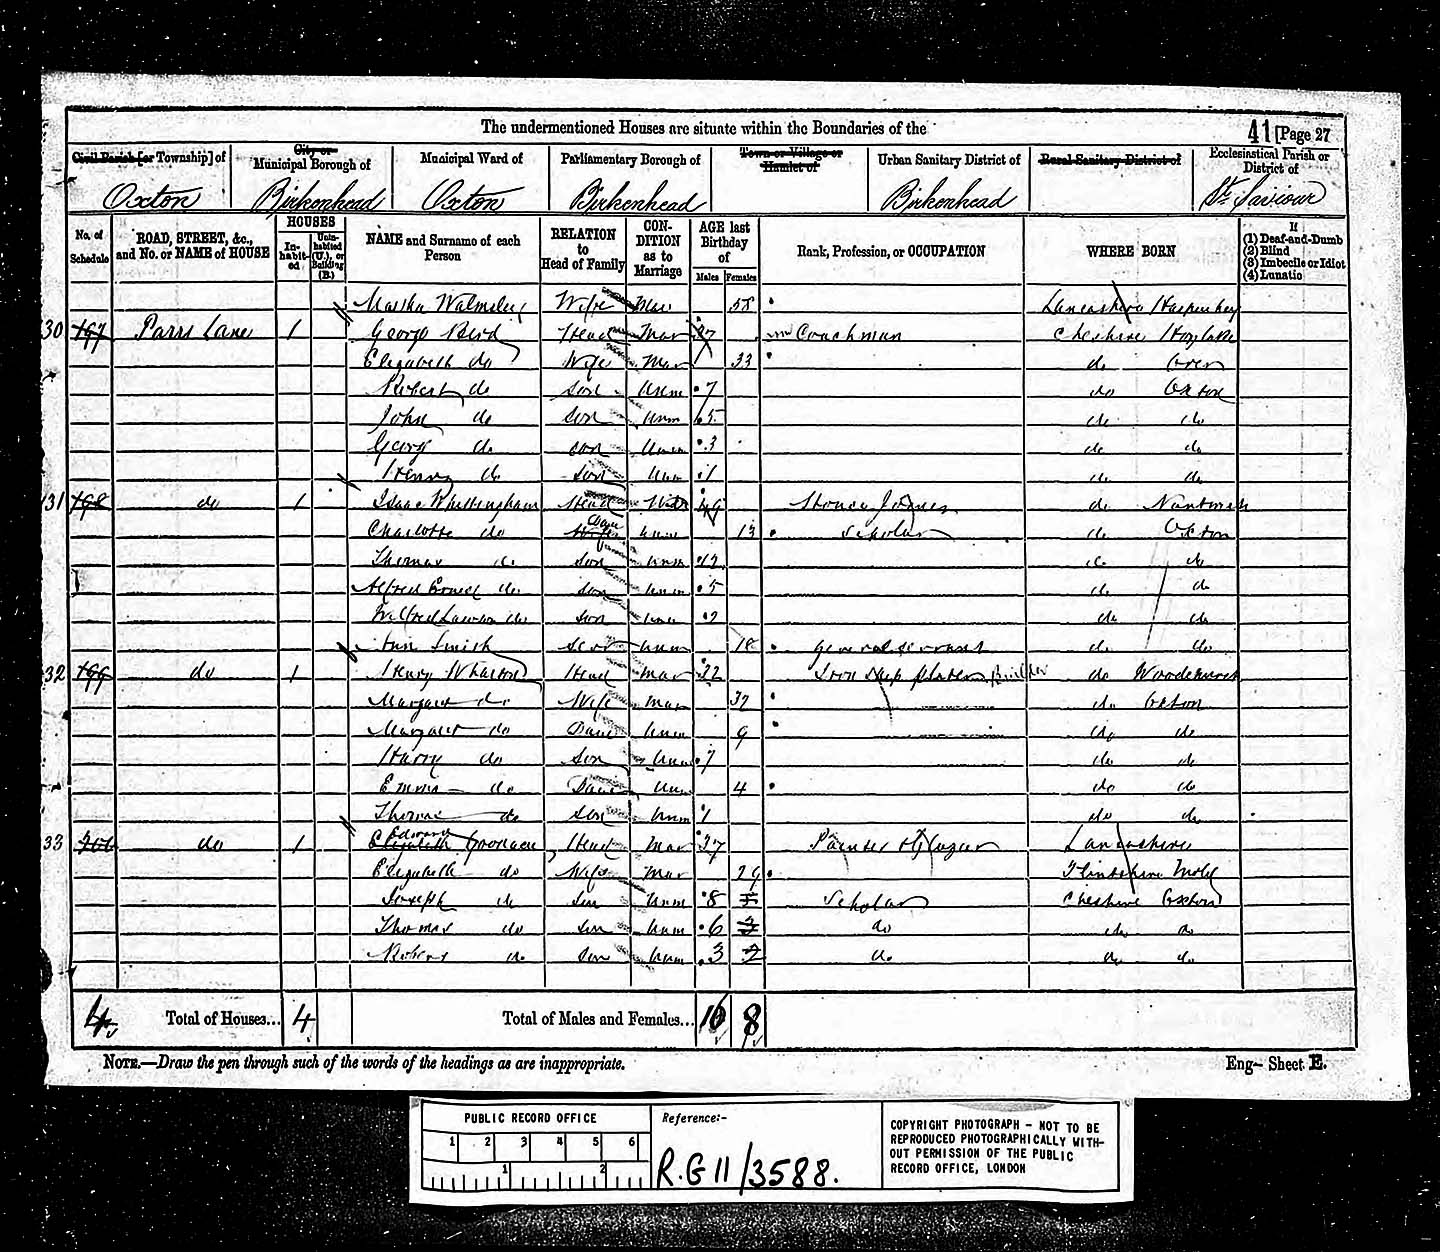 The undermentioned Houses are situate within the Boundaries of the
41 [Page 27
Civil Parish [or Township] of
City or Municipal Borough of
Municipal Ward of
Parliamentary Borough of
Town or Village or Hamlet of
Urban Sanitary District of
Rural Sanitary District of
Ecclesiastical Parish or District of
Oxton Birkenhead Oxton Birkenhead Birkenhead St. Saviour
No. of Schedule
ROAD, STREET, &c., and No. or NAME of HOUSE
HOUSES
In-habit-ed
Unin-habited (U.), or Building (B.)
NAME and Surname of each Person
RELATION to Head of Family
CON-DITION as to Marriage
AGE last Birthday of
Males Females
Rank, Profession, or OCCUPATION
WHERE BORN
If
(1) Deaf-and-Dumb
(2) Blind
(3) Imbecile or Idiot
(4) Lunatic
Martha Walmsley Wife Mar 58 Lancashire
30 197 Parrs Lane 1 George Bird Head Mar 37 Coachman Cheshire Hoylake
Elizabeth do Wife Mar 33 do
Robert do Son Unm 7 do Oxton
John do Son Unm 5 do do
George do Son Unm 3 do do
Henry do Son Unm 1 do do
31 198 do 1 Isaac Whittingham Head Widr 49 do Nantwich
Charlotte do Wife Daur Unm 13 Scholar do Oxton
Thomas do Son Unm 12 do do
Alfred Ernest do Son Unm 5 do do
Wilfred do Son Unm 2 do do
Ann Smith Serv Unm 18 General Servant do do
32 199 do 1 Henry Head Mar 32 Iron Ship Builder do
Margaret do Wife Mar 32 do Oxton
Margaret do Daur Unm 9 do do
Harry do Son Unm 7 do do
Emma do Daur Unm 4 do do
Thomas do Son Unm 1 do do
33 200 do 1 Elizabeth Edward Head Mar 37 Painter & Glazier Lancashire
Elizabeth do Wife Mar 29 Flintshire Mold
Joseph do Son Unm 8 Scholar Cheshire Oxton
Thomas do Son Unm 6 do do do
Robert do Son Unm 3 do do do
4 Total of Houses... 4 Total of Males and Females... 16 8
NOTE.—Draw the pen through such of the words of the headings as are inappropriate.
Eng— Sheet E.
PUBLIC RECORD OFFICE
1 2 3 4 5 6
1 2
Reference:-
R.G 11/3588.
COPYRIGHT PHOTOGRAPH - NOT TO BE
REPRODUCED PHOTOGRAPHICALLY WITH-
OUT PERMISSION OF THE PUBLIC
RECORD OFFICE, LONDON